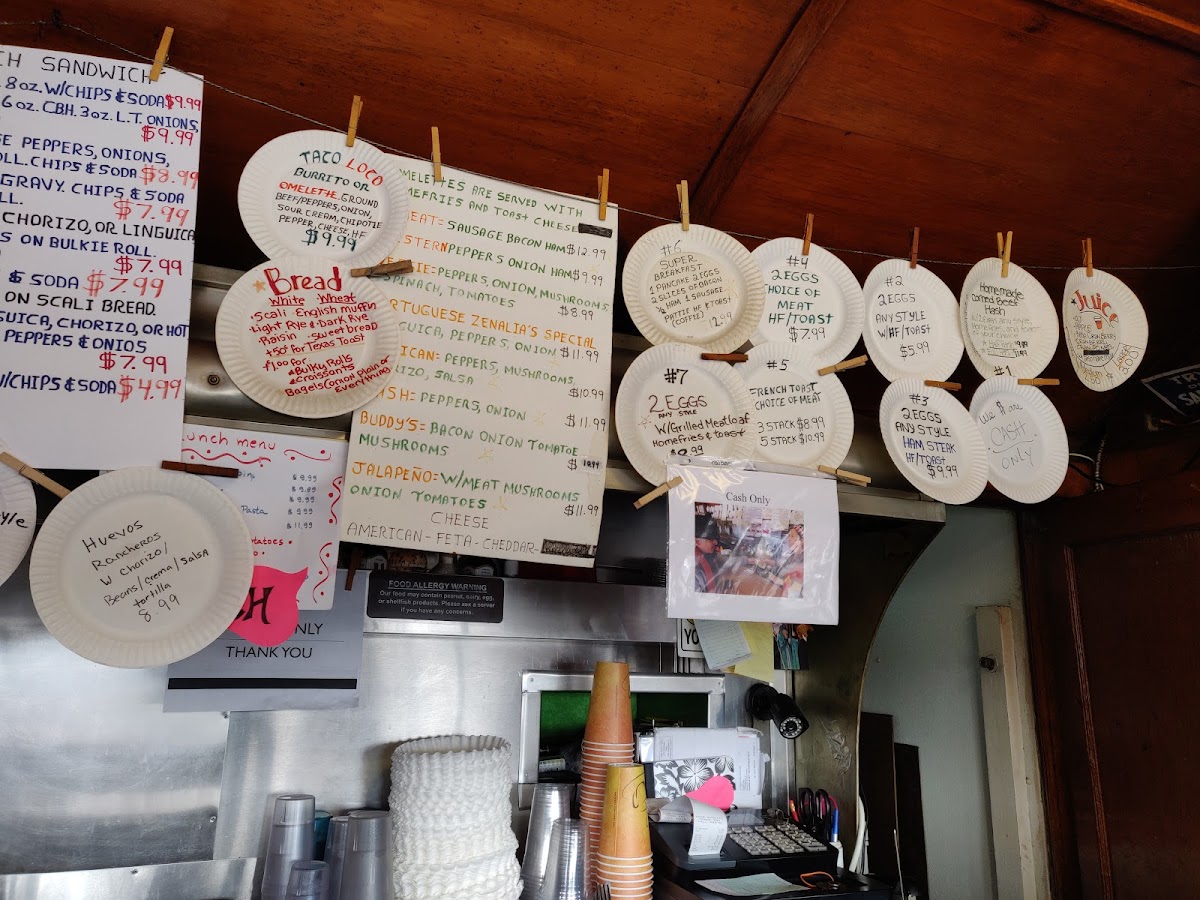 CH SANDWICH
8oz. W/CHIPS & SODA $9.99
6oz. CBH. 3oz. L.T. ONIONS,
$9.99
PEPPERS, ONIONS,
CHIPS & SODA $8.99
GRAVY. CHIPS & SODA
$7.99
CHORIZO, OR LINGUICA
ON BULKIE ROLL.
$7.99
& SODA $7.99
ON SCALI BREAD.
CHORIZO, OR HOT
PEPPERS & ONIOS
$7.99
W/CHIPS & SODA $4.99
TACO LOCO
BURRITO OR
OMELETTE. GROUND
BEEF/PEPPERS, ONION,
SOUR CREAM, CHIPOTLE
PEPPER, CHEESE, HF
$9.99
Bread
White Wheat
Scali English muffin
Light Rye & Dark Rye
Raisin sweet bread
+50¢ for Texas Toast
$1.00 for
Bulky Rolls
croissants
Bagels (Onion Plain or
Everything)
OMELETTES ARE SERVED WITH
HOMEFRIES AND TOAST CHEESE
MEAT= SAUSAGE BACON HAM $12.99
WESTERN PEPPERS ONION HAM $9.99
PEPPERS, ONION, MUSHROOMS,
SPINACH, TOMATOES
$8.99
PORTUGUESE ZENALIA'S SPECIAL
PEPPERS, ONION $11.99
PEPPERS, MUSHROOMS,
SALSA
$10.99
PEPPERS, ONION
$11.99
BUDDY'S= BACON ONION TOMATOE
MUSHROOMS
JALAPEÑO= W/MEAT MUSHROOMS
ONION TOMATOES
$11.99
CHEESE
AMERICAN-FETA-CHEDDAR-
#6
SUPER
BREAKFAST
1 PANCAKE 2 EGGS
2 SLICES OF BACON
1 SAUSAGE
PATTIE HF & TOAST
(COFFEE)
#4
2 EGGS
CHOICE OF
MEAT
HF/TOAST
$7.99
#2
2 EGGS
ANY STYLE
W/HF/TOAST
$5.99
Homemade
Corned Beef
Hash
Julie
#7
2 EGGS
ANY STYLE
W/Grilled Meatloaf
Homefries & toast
#5
FRENCH TOAST
CHOICE OF MEAT
3 STACK $8.99
5 STACK $10.99
#3
2 EGGS
ANY STYLE
HAM STEAK
HF/TOAST
$9.99
#1
We are
CASH
ONLY
Lunch menu
$9.99
$9.99
$9.99
Pasta $9.99
$11.99
Huevos
Rancheros
W Chorizo/
Beans/crema/salsa
tortilla
8.99
ONLY
THANK YOU
FOOD ALLERGY WARNING
Our food may contain peanut, dairy, egg,
or shellfish products. Please see a server
if you have any concerns.
Cash Only